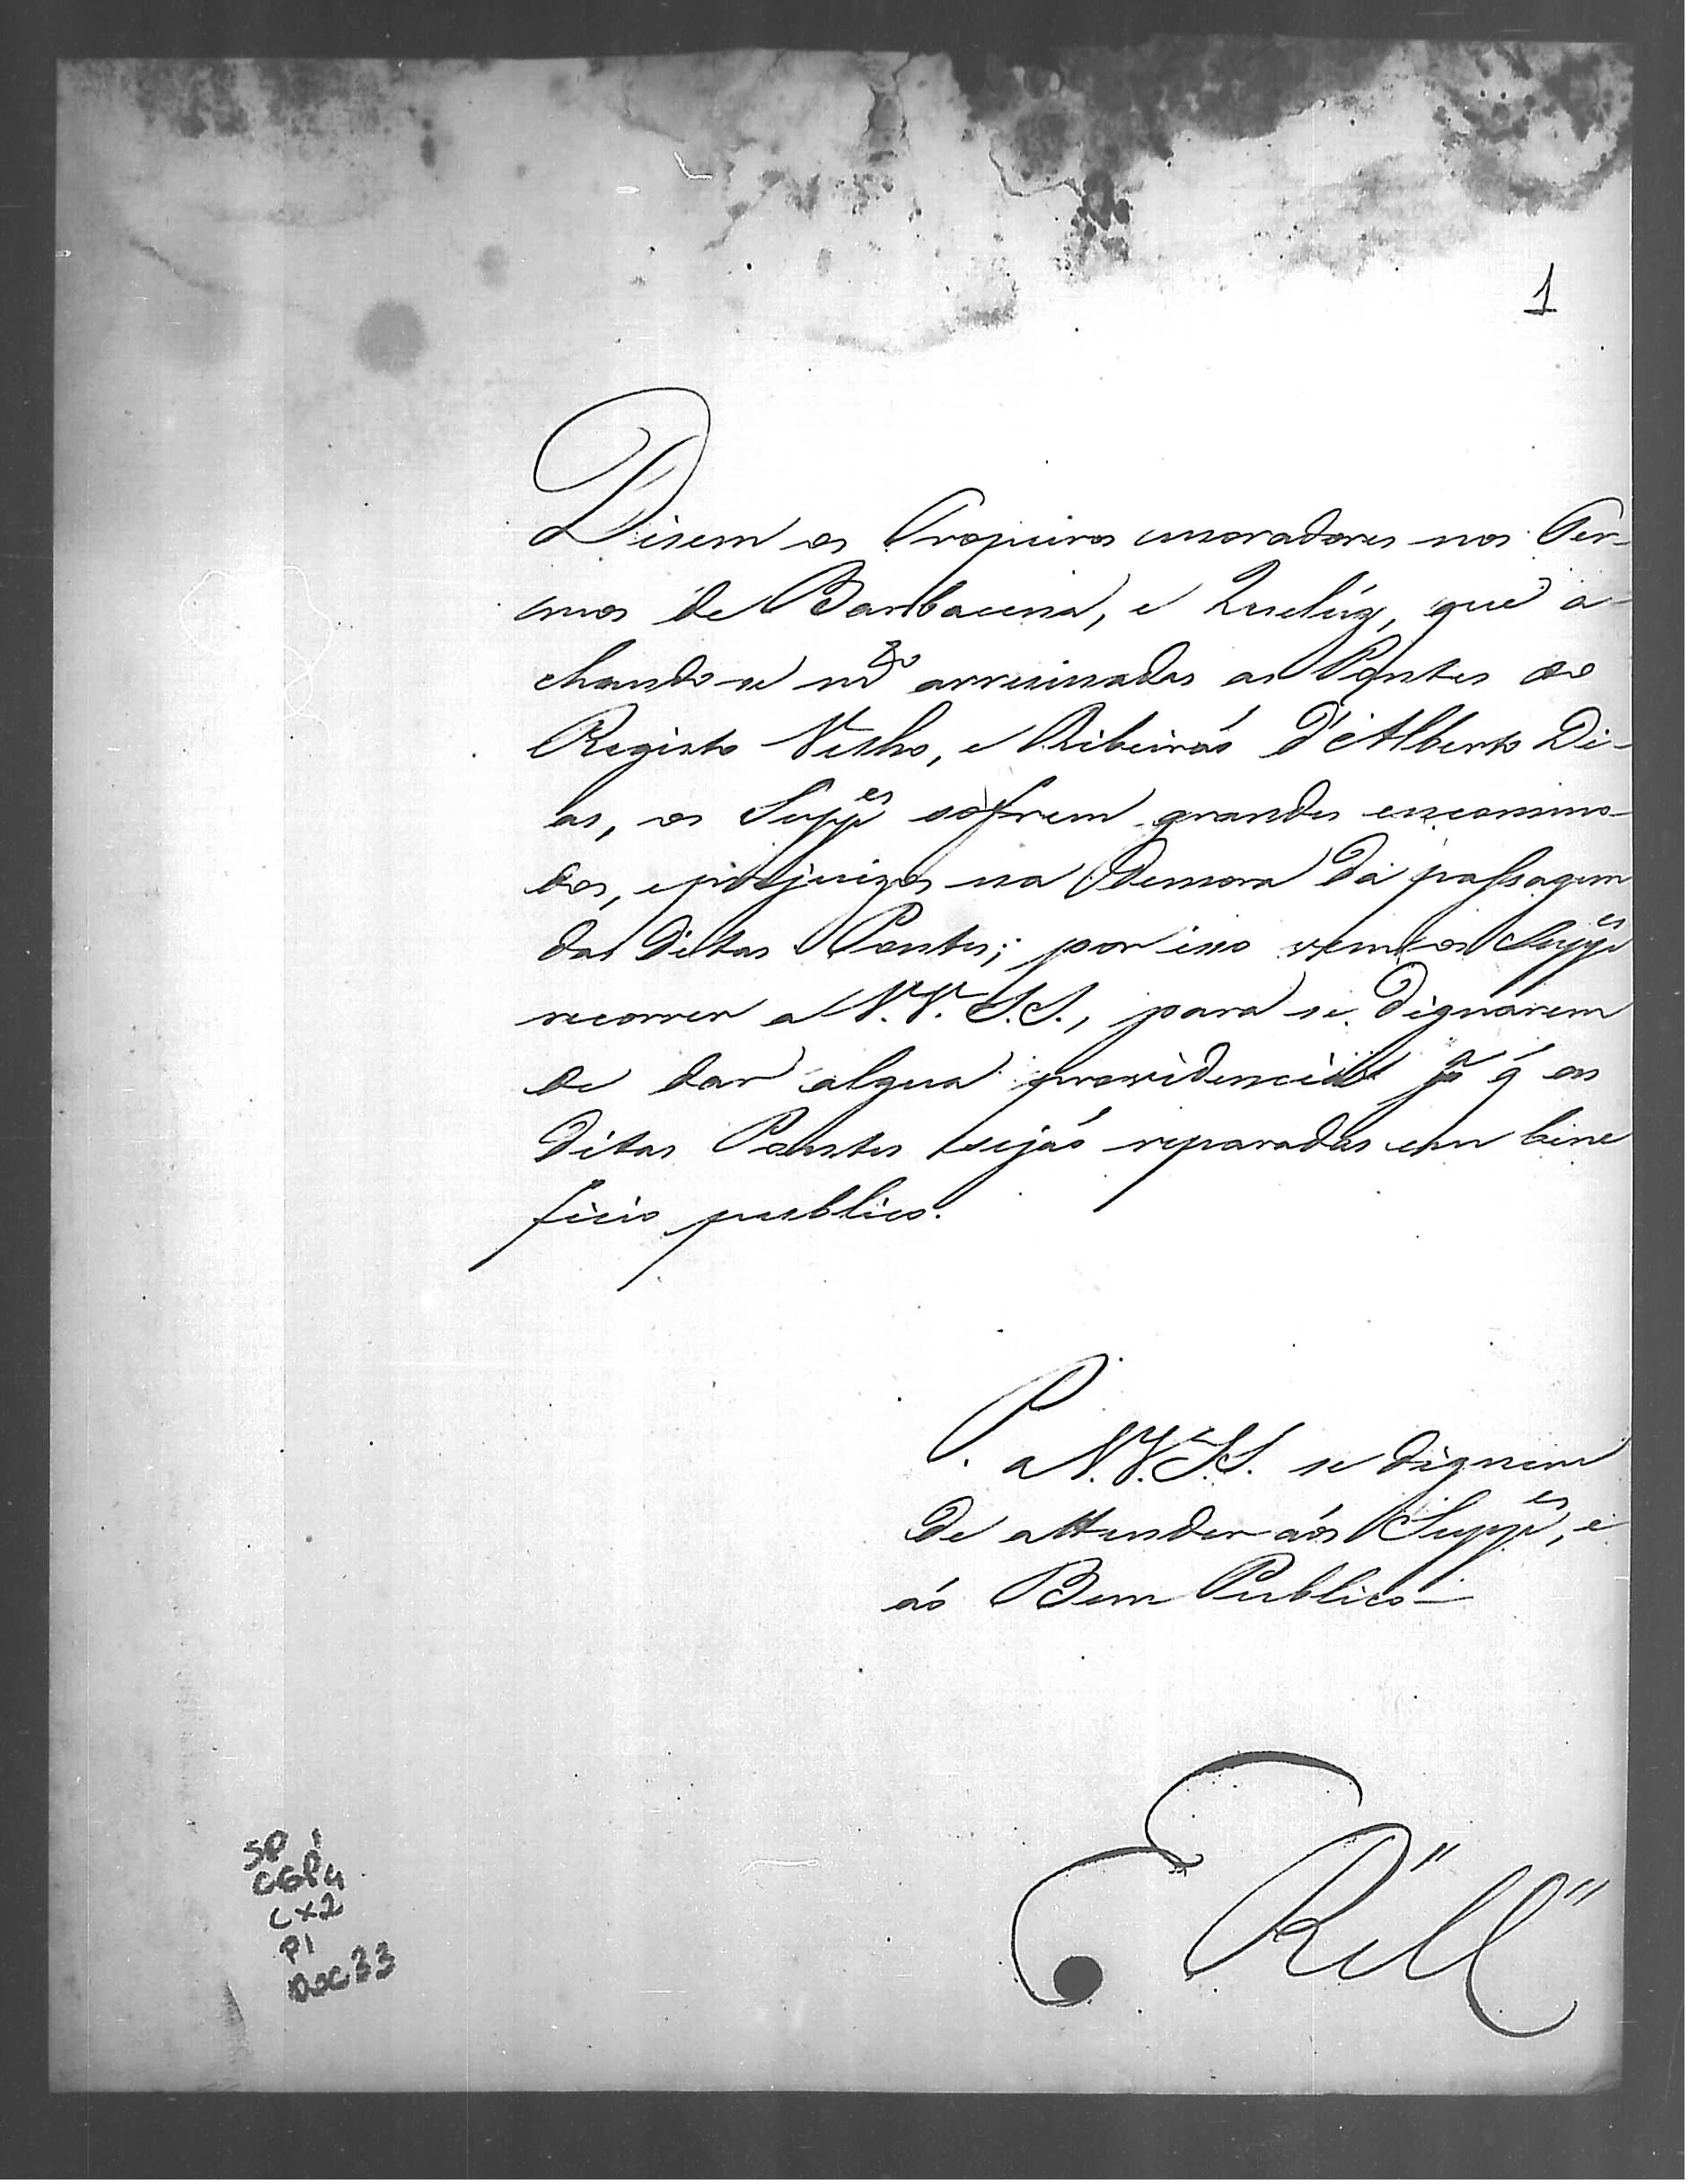 1
Disem os Tropeiros moradores nos Ter-
mos de Barbacena, e Queluz, que a-
chando-se mto arruinadas as Pontes do
Registo Velho, e Ribeirão d'Alberto Di-
as, os Suppes sofrem grandes encommo-
dos, e prejuizos na demora da passagem
das ditas Pontes; por isso vem os Suppes
recorrer a V.V. S.S., para se dignarem
de dar algua providencia pa q̃ as
ditas Pontes sejão reparadas em bene
ficio publico.
P. a V.V.S.S. se dignem
de attender aós Suppes, e
aó Bem Publico
E R" M"
SP 1
CGP4
CX2
P1
DOC33